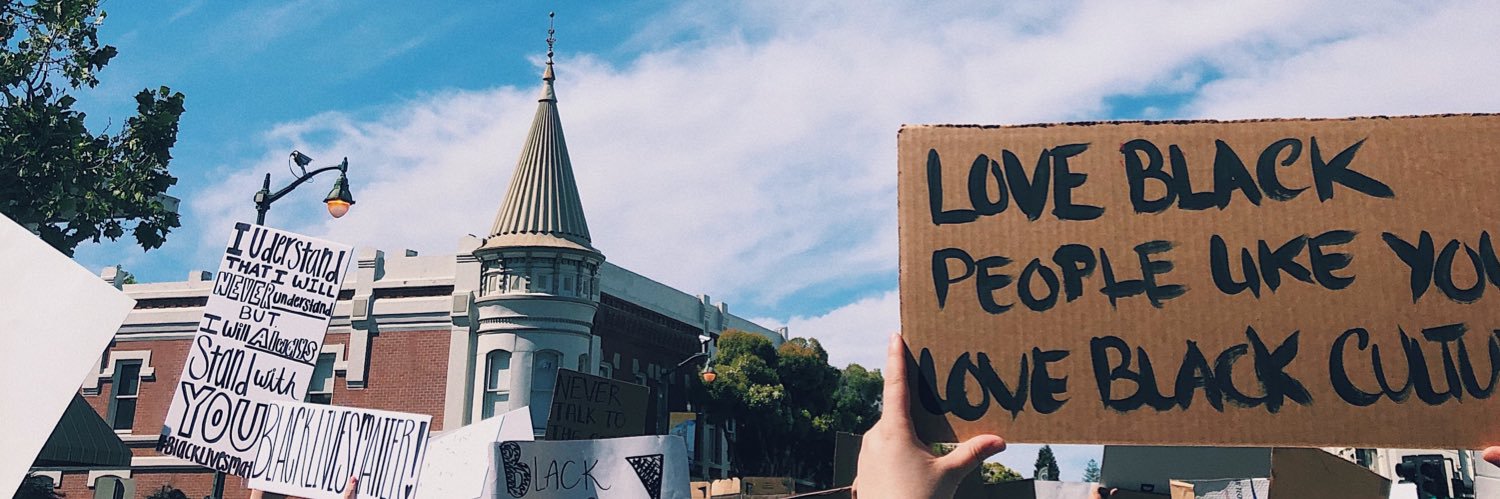 I Uderstand
THAT I WILL
NEVER understand
BUT
I will Always
Stand with
YOU
#BLACKLIVESMA
BLACK LIVES MATTER!
NEVER
TALK TO
THE
BLACK
LOVE BLACK
PEOPLE LIKE YOU
LOVE BLACK CULTU